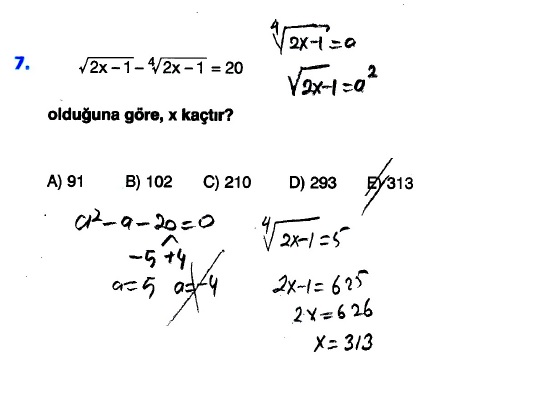 7. √2x-1 - ∜2x-1 = 20
∜2x-1 = a
√2x-1 = a²
olduğuna göre, x kaçtır?
A) 91 B) 102 C) 210 D) 293 E) 313
a² - a - 20 = 0
-5 +4
a = 5 a = -4
∜2x-1 = 5
2x-1 = 625
2x = 626
x = 313